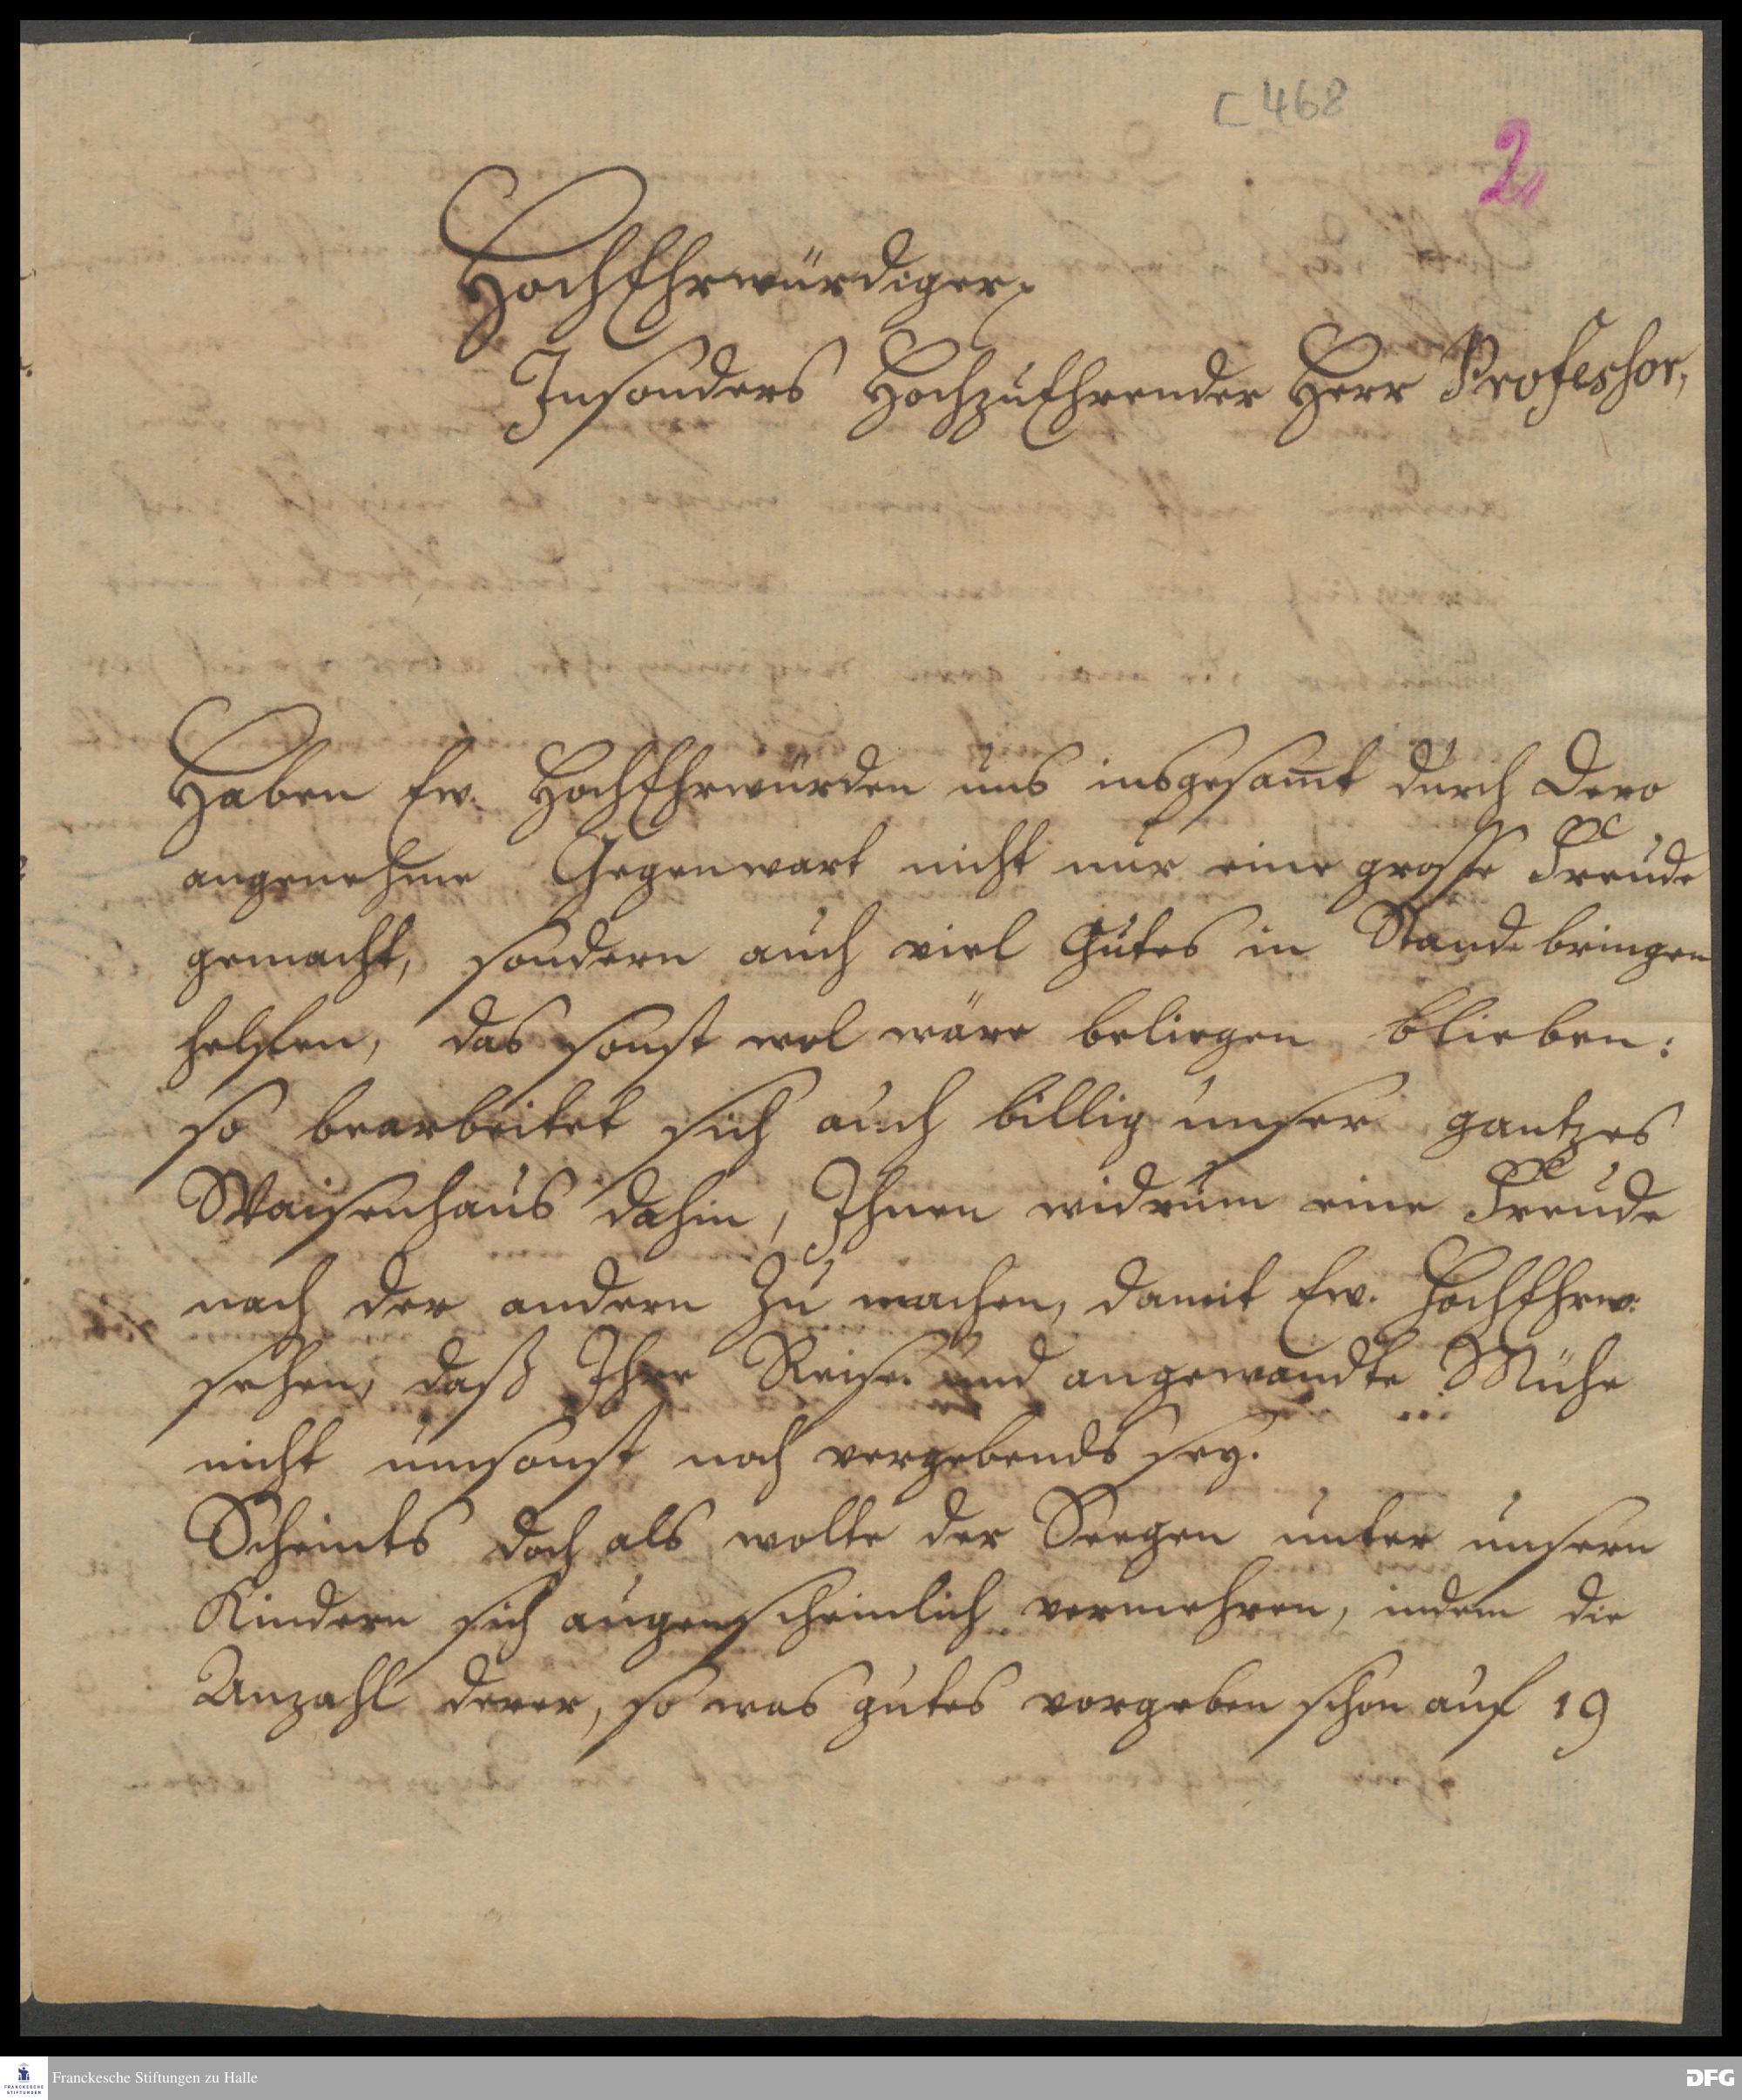 C 468
2
HochEhrwürdiger,
Insonders HochzuEhrender Herr Professor,
Haben Ew. HochEhrwürden uns insgesamt durch Dero
angenehme Gegenwart nicht nur eine grosse Freude
gemacht, sondern auch viel Gutes in Stande bringen
helffen, das sonst wol wäre beliegen blieben:
so bearbeitet sich auch billig unser gantzes
Waisenhaus dahin, Ihnen widrum eine Freude
nach der andern zu machen, damit Ew. HochEhrw.
sehen, daß Ihre Reise und angewandte Mühe
nicht umsonst noch vergebends sey.
Scheints doch als wolte der Seegen unter unsern
Kindern sich augenscheinlich vermehren, indem die
Anzahl derer, so was gutes vorgeben schon auf 19
FRANCKESCHE STIFTUNGEN
Franckesche Stiftungen zu Halle
DFG